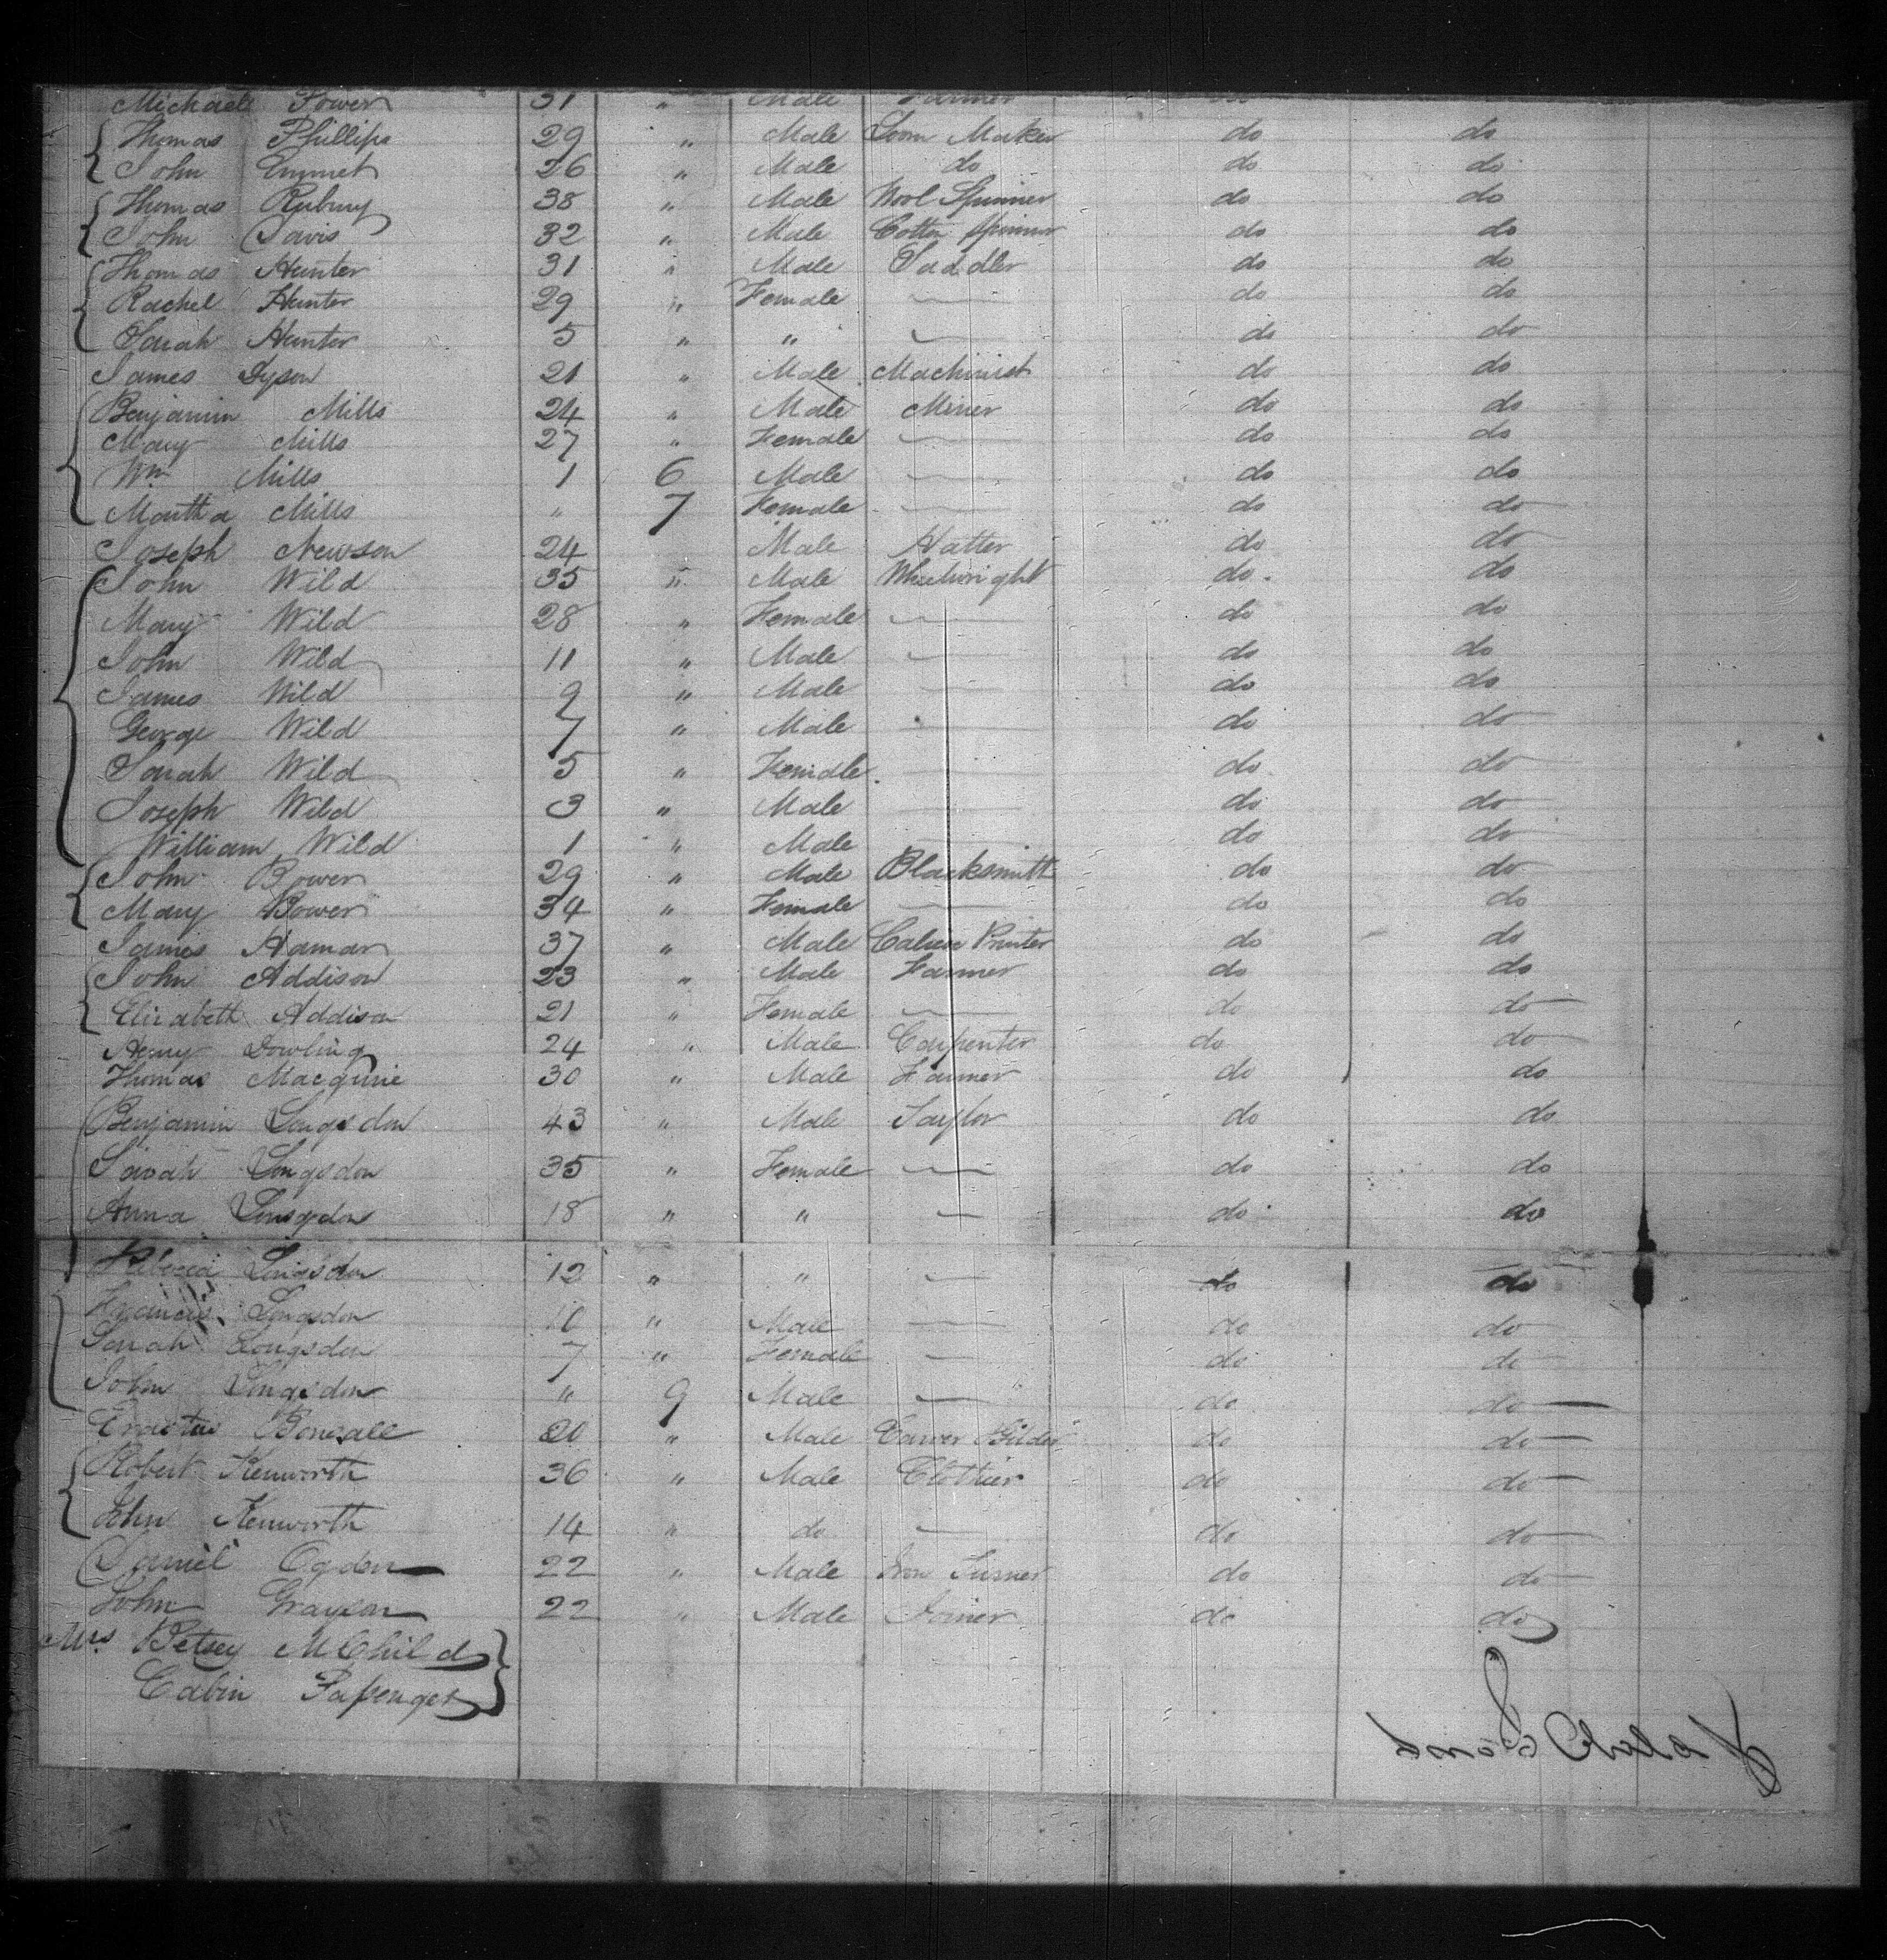 Michael Power 31 " Male Farmer
Thomas Phillips 29 " Male Loom Maker do do
John Emmet 26 " Male do do do
Thomas 38 " Male Wool Spinner do do
John Davis 32 " Male Cotton Spinner do do
Thomas Hunter 31 " Male Saddler do do
Rachel Hunter 29 " Female — do do
Sarah Hunter 5 " " — do do
James Dyson 21 " Male Machinist do do
Benjamin Mills 24 " Male Miner do do
Mary Mills 27 " Female — do do
Wm Mills 1 6 Male — do do
Martha Mills " 7 Female — do do
Joseph Newson 24 Male Hatter do do
John Wild 35 " Male Wheelwright do do
Mary Wild 28 " Female — do do
John Wild 11 " Male — do do
James Wild 9 " Male — do do
George Wild 7 " Male — do do
Sarah Wild 5 " Female — do do
Joseph Wild 3 " Male — do do
William Wild 1 " Male — do do
John Bower 29 " Male Blacksmith do do
Mary Bower 34 " Female — do do
James Hamar 37 " Male Calico Printer do do
John Addison 23 " Male Farmer do do
Elizabeth Addison 21 " Female — do do
Henry Dowling 24 " Male Carpenter do do
Thomas Macguire 30 " Male Farmer do do
Benjamin Longsdon 43 " Male Taylor do do
Sarah Longsdon 35 " Female — do do
Anna Longsdon 18 " " — do do
Rebecca Longsdon 12 " " — do do
Francis Longsdon 10 " Male — do do
Sarah Longsdon 7 " Female — do do
John Longsdon " 9 Male — do do
Erastus Bonsall 20 " Male Carver Gilder do do
Robert Kenworth 36 " Male Clothier do do
John Kenworth 14 " do — do do
Daniel Ogden 22 " Male Iron Turner do do
John Grayson 22 " Male Joiner do do
Mrs Betsey McChild
Cabin Passenger